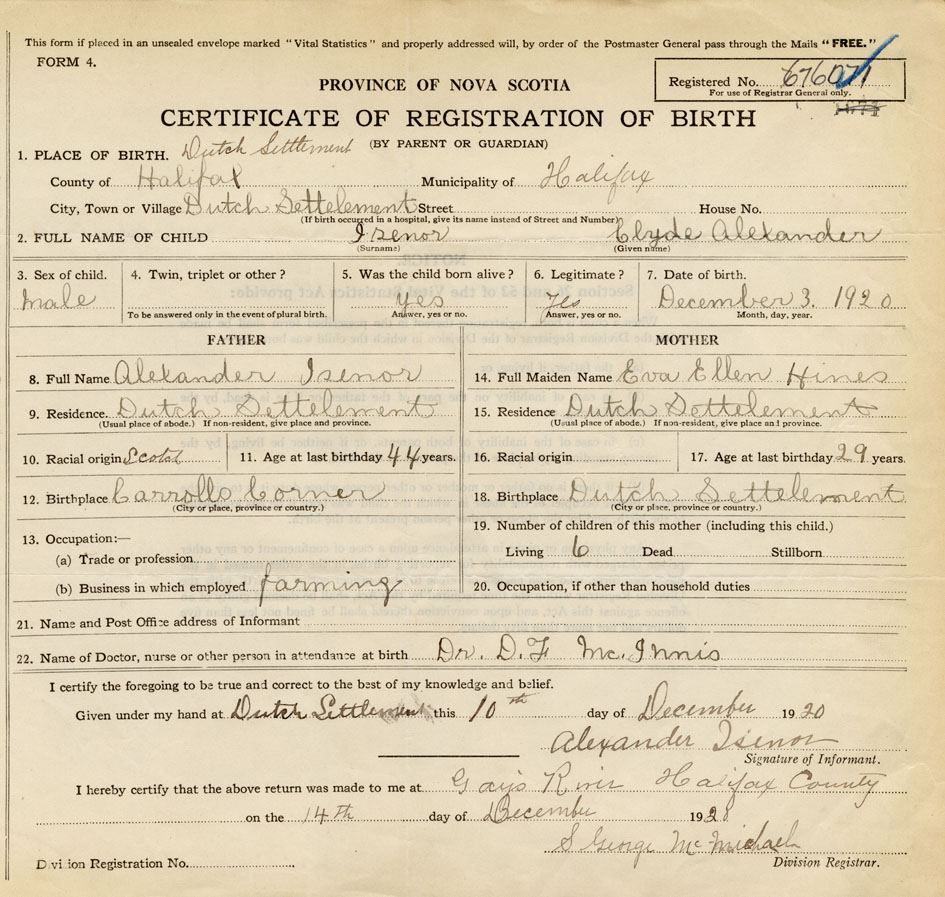 This form if placed in an unsealed envelope marked "Vital Statistics" and properly addressed will, by order of the Postmaster General pass through the Mails "FREE."
FORM 4.
PROVINCE OF NOVA SCOTIA
Registered No. 676071
For use of Registrar General only.
CERTIFICATE OF REGISTRATION OF BIRTH
1. PLACE OF BIRTH. Dutch Settlement (BY PARENT OR GUARDIAN)
County of Halifax Municipality of Halifax
City, Town or Village Dutch Settelement Street House No.
(If birth occurred in a hospital, give its name instead of Street and Number)
2. FULL NAME OF CHILD Isenor Clyde Alexander
(Surname) (Given name)
3. Sex of child. 4. Twin, triplet or other? 5. Was the child born alive? 6. Legitimate? 7. Date of birth.
Male yes yes December 3. 1920
To be answered only in the event of plural birth. Answer, yes or no. Answer, yes or no. Month, day, year.
FATHER MOTHER
8. Full Name Alexander Isenor 14. Full Maiden Name Eva Ellen Hines
9. Residence. Dutch Settelement 15. Residence Dutch Settelement
(Usual place of abode.) If non-resident, give place and province. (Usual place of abode.) If non-resident, give place and province.
10. Racial origin 11. Age at last birthday 44 years. 16. Racial origin 17. Age at last birthday 29 years.
12. Birthplace Carrolls Corner 18. Birthplace Dutch Settelement
(City or place, province or country.) (City or place, province or country.)
13. Occupation:— 19. Number of children of this mother (including this child.)
(a) Trade or profession Living 6 Dead Stillborn
(b) Business in which employed farming 20. Occupation, if other than household duties
21. Name and Post Office address of Informant
22. Name of Doctor, nurse or other person in attendance at birth Dr. D. F Mc.Innis
I certify the foregoing to be true and correct to the best of my knowledge and belief.
Given under my hand at Dutch Settlement this 10th day of December 1920
Alexander Isenor
Signature of Informant.
I hereby certify that the above return was made to me at Gays River Halifax County
on the 14th day of December 1920
S George McMichael
Division Registrar.
Division Registration No.